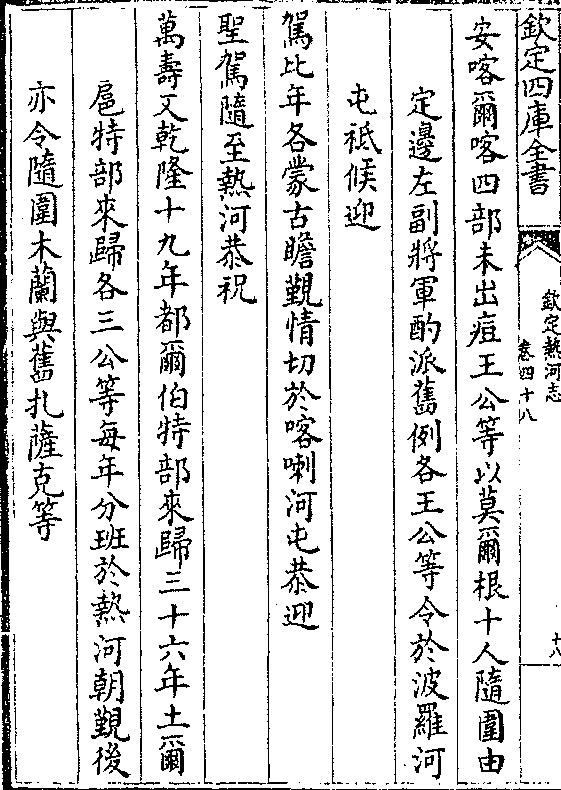 欽定四庫全書
欽定熱河志
卷四十八
十八
安喀爾喀四部未出痘王公等以莫爾根十人隨圍由
定邊左副將軍酌派舊例各王公等令於波羅河
屯祗候迎
駕比年各蒙古瞻覲情切於喀喇河屯恭迎
聖駕隨至熱河恭祝
萬壽又乾隆十九年都爾伯特部來歸三十六年土爾
扈特部來歸各三公等每年分班於熱河朝覲後
亦令隨圍木蘭與舊扎薩克等